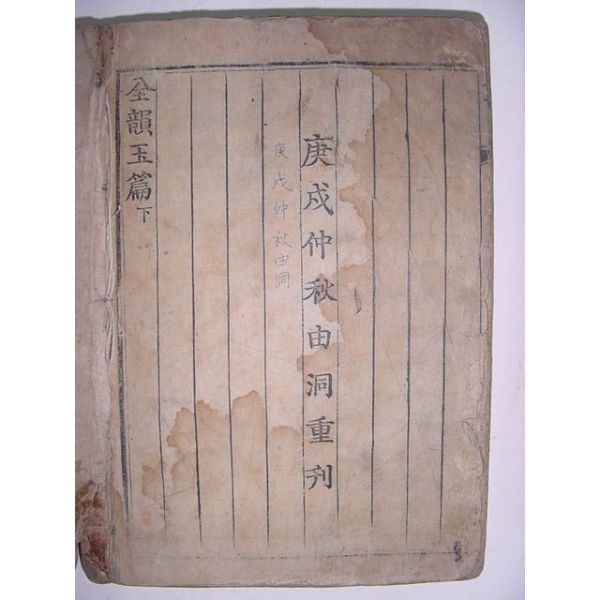 庚戌仲秋由洞重刋
庚戌仲秋由洞
全韻玉篇下